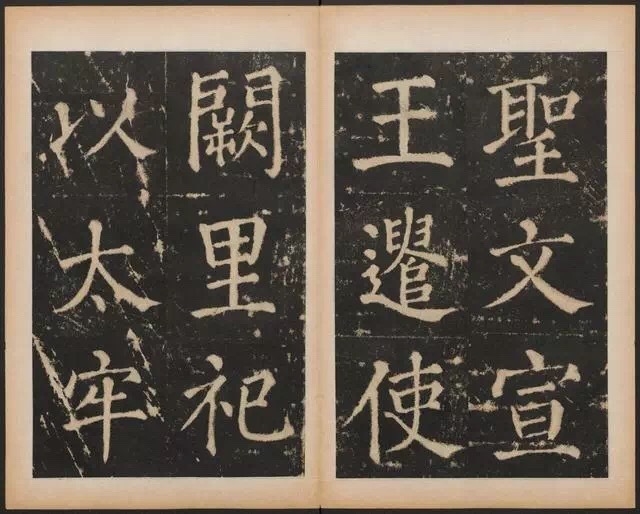 聖文宣
王遣使
闕里祀
以太牢